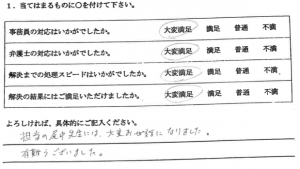 1. 当てはまるものに○を付けて下さい。
事務員の対応はいかがでしたか。 大変満足 満足 普通 不満
弁護士の対応はいかがでしたか。 大変満足 満足 普通 不満
解決までの処理スピードはいかがでしたか。 大変満足 満足 普通 不満
解決の結果にはご満足いただけましたか。 大変満足 満足 普通 不満
よろしければ、具体的にご記入ください。
担当の尾中先生には、大変お世話になりました。
有難うございました。